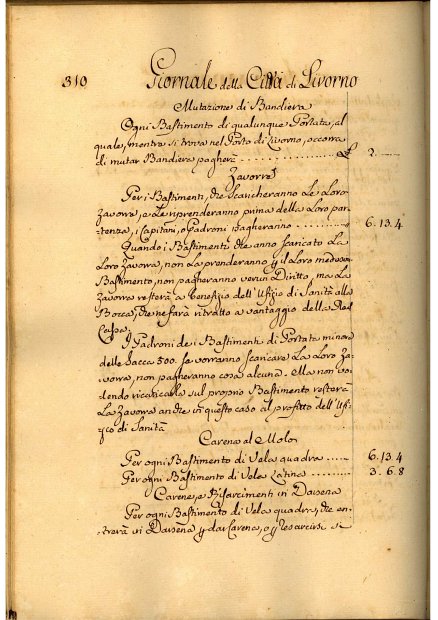 310
Giornale della Città di Livorno
Mutazione di Bandiera
Ogni Bastimento di qualunque Portata, al
quale, mentre si trova nel Porto di Livorno, occorra
di mutar Bandiera pagherà ............... 2
Zavorre
Per i Bastimenti, che Scaricheranno Le Loro
Zavorre, e Le riprenderanno prima della Loro par-
tenza, i Capitani, o Padroni pagheranno ......... 6.13.4
Quando i Bastimenti che anno scaricato La
Loro Zavorra, non La prenderanno il Loro medesimo
Bastimento, non pagheranno verun Diritto, ma La
Zavorra resterà a benefizio dell'Ufizio di Sanità alla
Bocca, che ne farà ritratto a vantaggio della
Cassa.
I Padroni de i Bastimenti di Portata minore
delle Sacca 500. se vorranno scaricare La Loro Za-
vorra, non pagheranno cosa alcuna. Ma non vo-
lendo ricaricarla sul proprio Bastimento resterà
La Zavorra anche in questo caso al profitto dell'Ufi-
zio di Sanità
Carena al Molo
Per ogni Bastimento di Vela quadra ....... 6.13.4
Per ogni Bastimento di Vela Latina ........ 3.6.8
Carene, e Risarcimenti in Darsena
Per ogni Bastimento di Vela quadra, che en-
trerà in Darsena dar Carena, o risarcirsi si